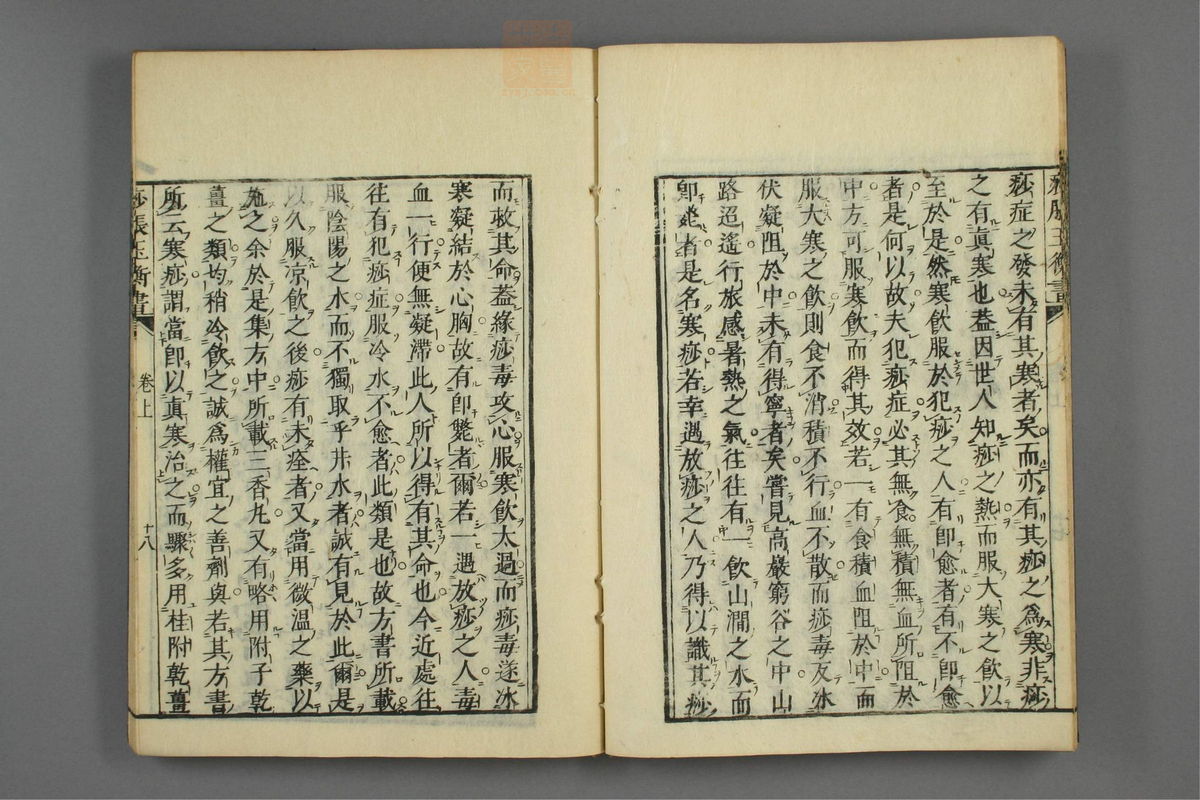 痧症之發未有其寒者矣而亦有其痧之為寒非痧
之有真寒也葢因世人知痧之熱而服大寒之飲以
至於是然寒飲服於犯痧之人有即愈者有不即愈
者是何以故夫犯痧症必其無食無積無血所阻於
中方可服寒飲而得其效若一有食積血阻於中而
服大寒之飲則食不消積不行血不散而痧毒反冰
伏凝阻於中未有得寧者矣嘗見高巖窮谷之中山
路迢遙行旅感暑熱之氣往往有一飲山澗之水而
即斃者是名寒痧若幸遇放痧之人乃得以識其痧
而救其命葢緣痧毒攻心服寒飲太過而痧毒遂冰
寒凝結於心胸故有即斃者爾若一遇放痧之人毒
血一行便無凝滯此人所以得有其命也今近處往
往有犯痧症服冷水不愈者此類是也故方書所載
服陰陽之水而不獨取乎井水者誠有見於此爾是
以久服凉飲之後痧有未痊者又當用微溫之藥以
施之余於是集方中所載三香丸又有略用附子乾
薑之類均稍冷飲之誠為權宜之善劑與若其方書
所云寒痧謂當即以真寒治之而驟多用桂附乾薑
痧脹玉衡書
卷上
十八